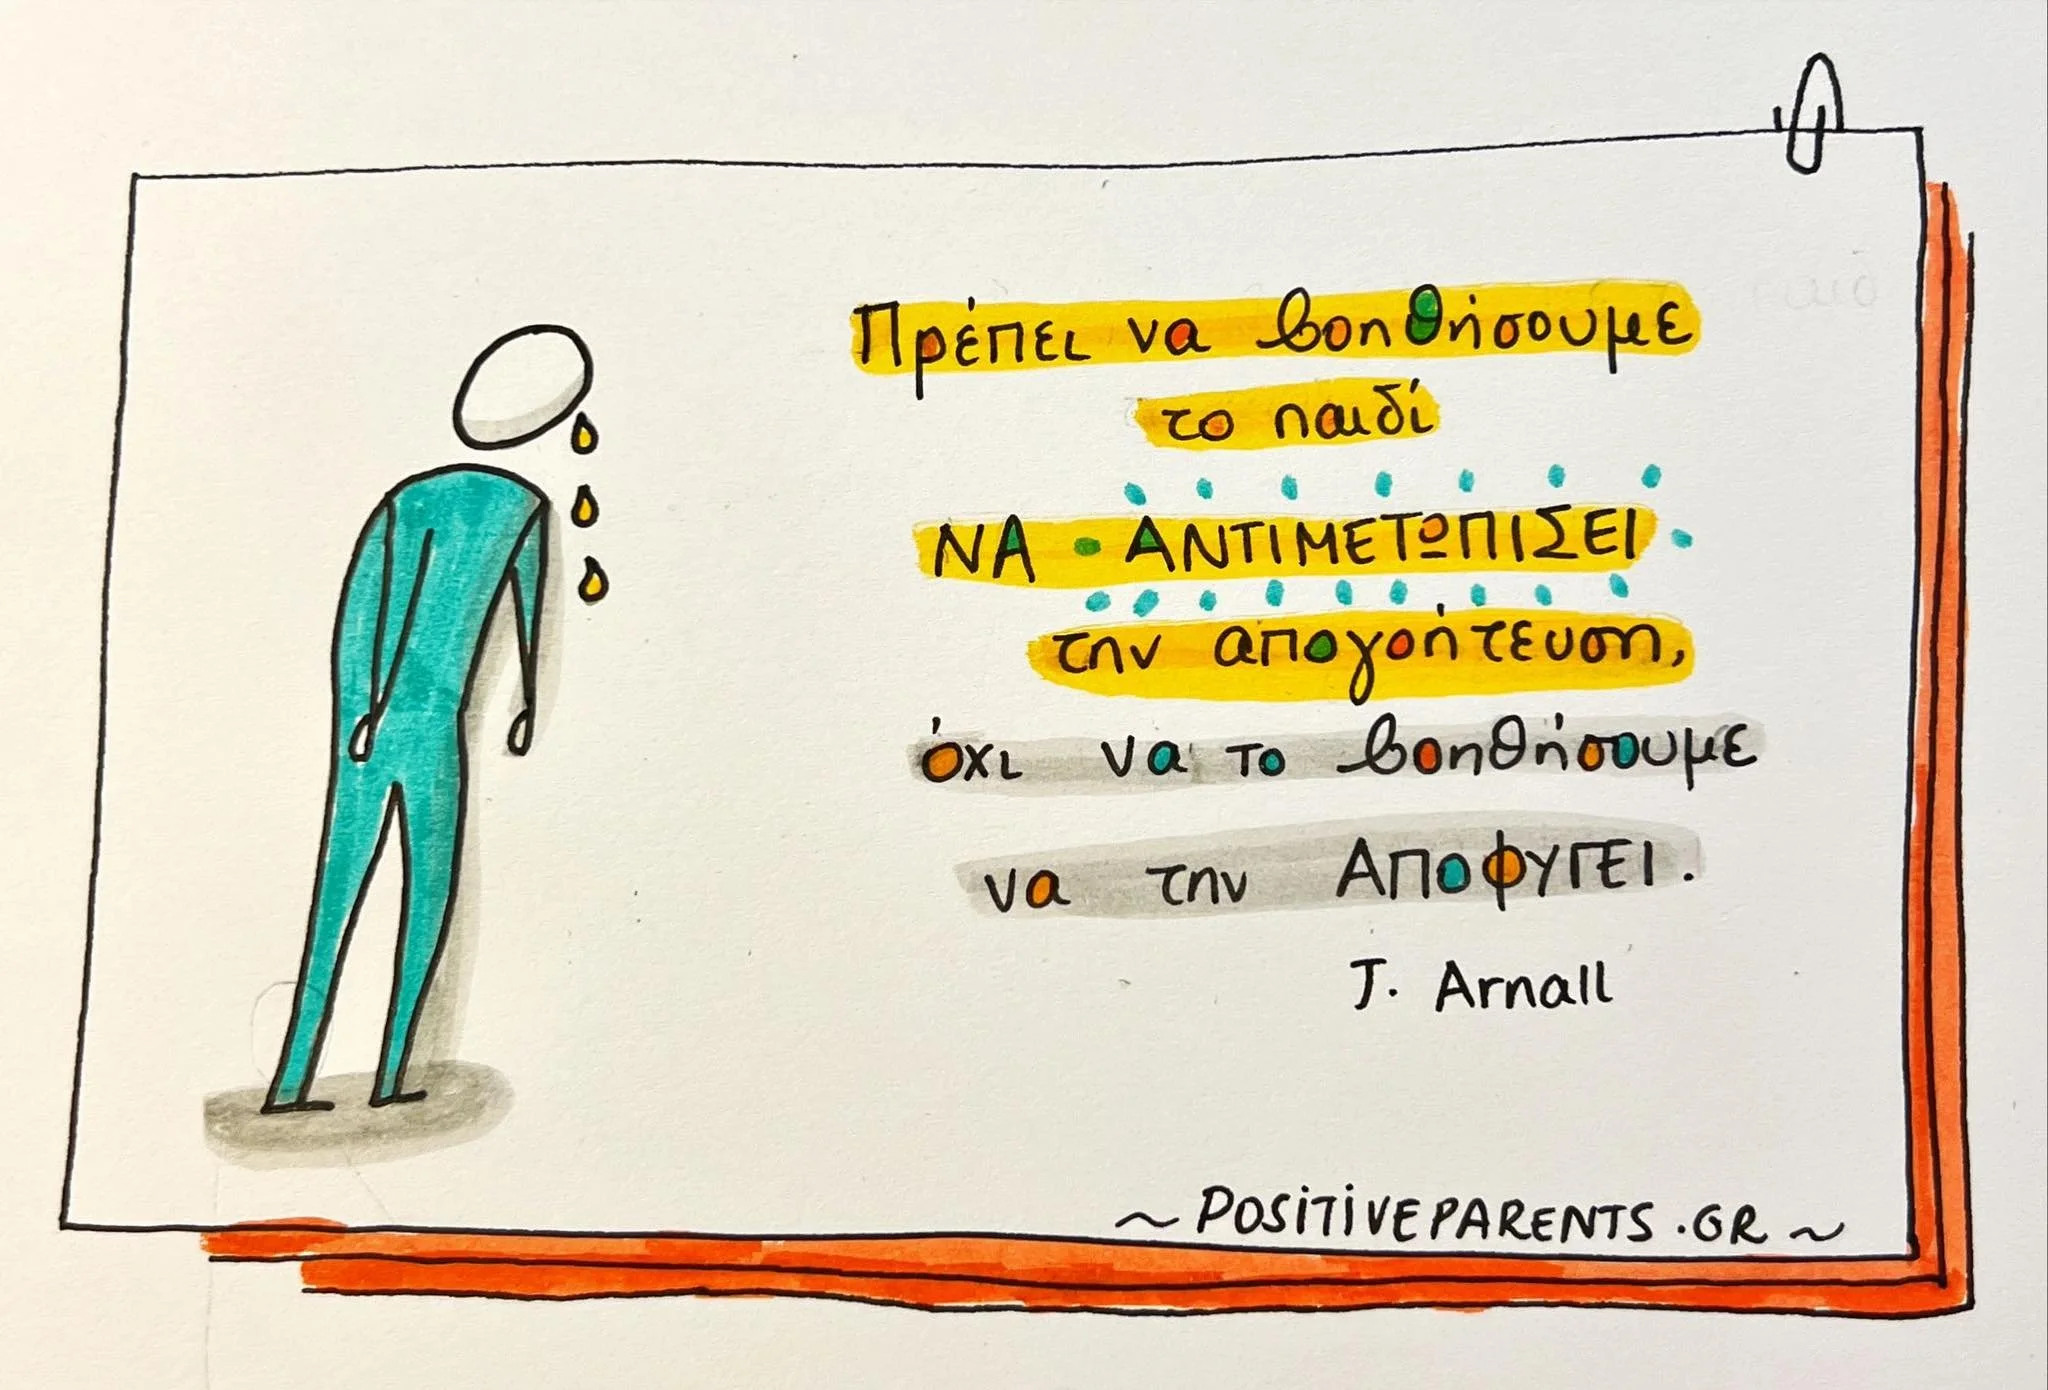 Πρέπει να βοηθήσουμε
το παιδί
ΝΑ ΑΝΤΙΜΕΤΩΠΙΣΕΙ
την απογοήτευση,
όχι να το βοηθήσουμε
να την ΑΠΟΦΥΓΕΙ.
J. Arnall
~ POSITIVEPARENTS.GR ~